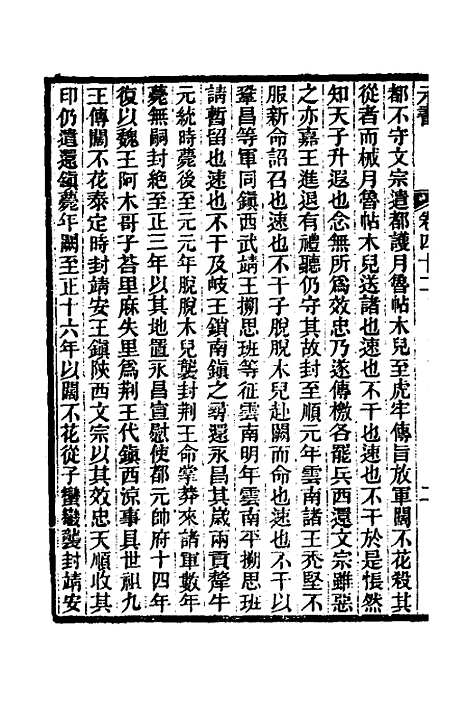 元書
卷四十二
二
都不守文宗遣都護月魯帖木兒至虎牢傳旨放軍闊不花殺其
從者而械月魯帖木兒送諸也速也不干也速也不干於是悵然
知天子升遐也念無所爲效忠乃遂傳檄各罷兵西還文宗雖惡
之亦嘉王進退有禮聽仍守其故封至順元年雲南諸王禿堅不
服新命詔召也速也不干子脫脫木兒赴闕而命也速也不干以
鞏昌等軍同鎮西武靖王搠思班等征雲南明年雲南平搠思班
請暫留也速也不干及岐王鎖南鎮之尋還永昌其歲兩貢犛牛
元統時薨後至元元年脫脫木兒襲封荆王命掌莽來諸軍數年
薨無嗣封絶至正三年以其地置永昌宣慰使都元帥府十四年
復以魏王阿木哥子荅里麻失里爲荆王代鎮西涼事具世祖九
王傳闊不花泰定時封靖安王鎮陝西文宗以其效忠天順收其
印仍遣還鎮薨年闕至正十六年以闊不花從子蠻蠻襲封靖安